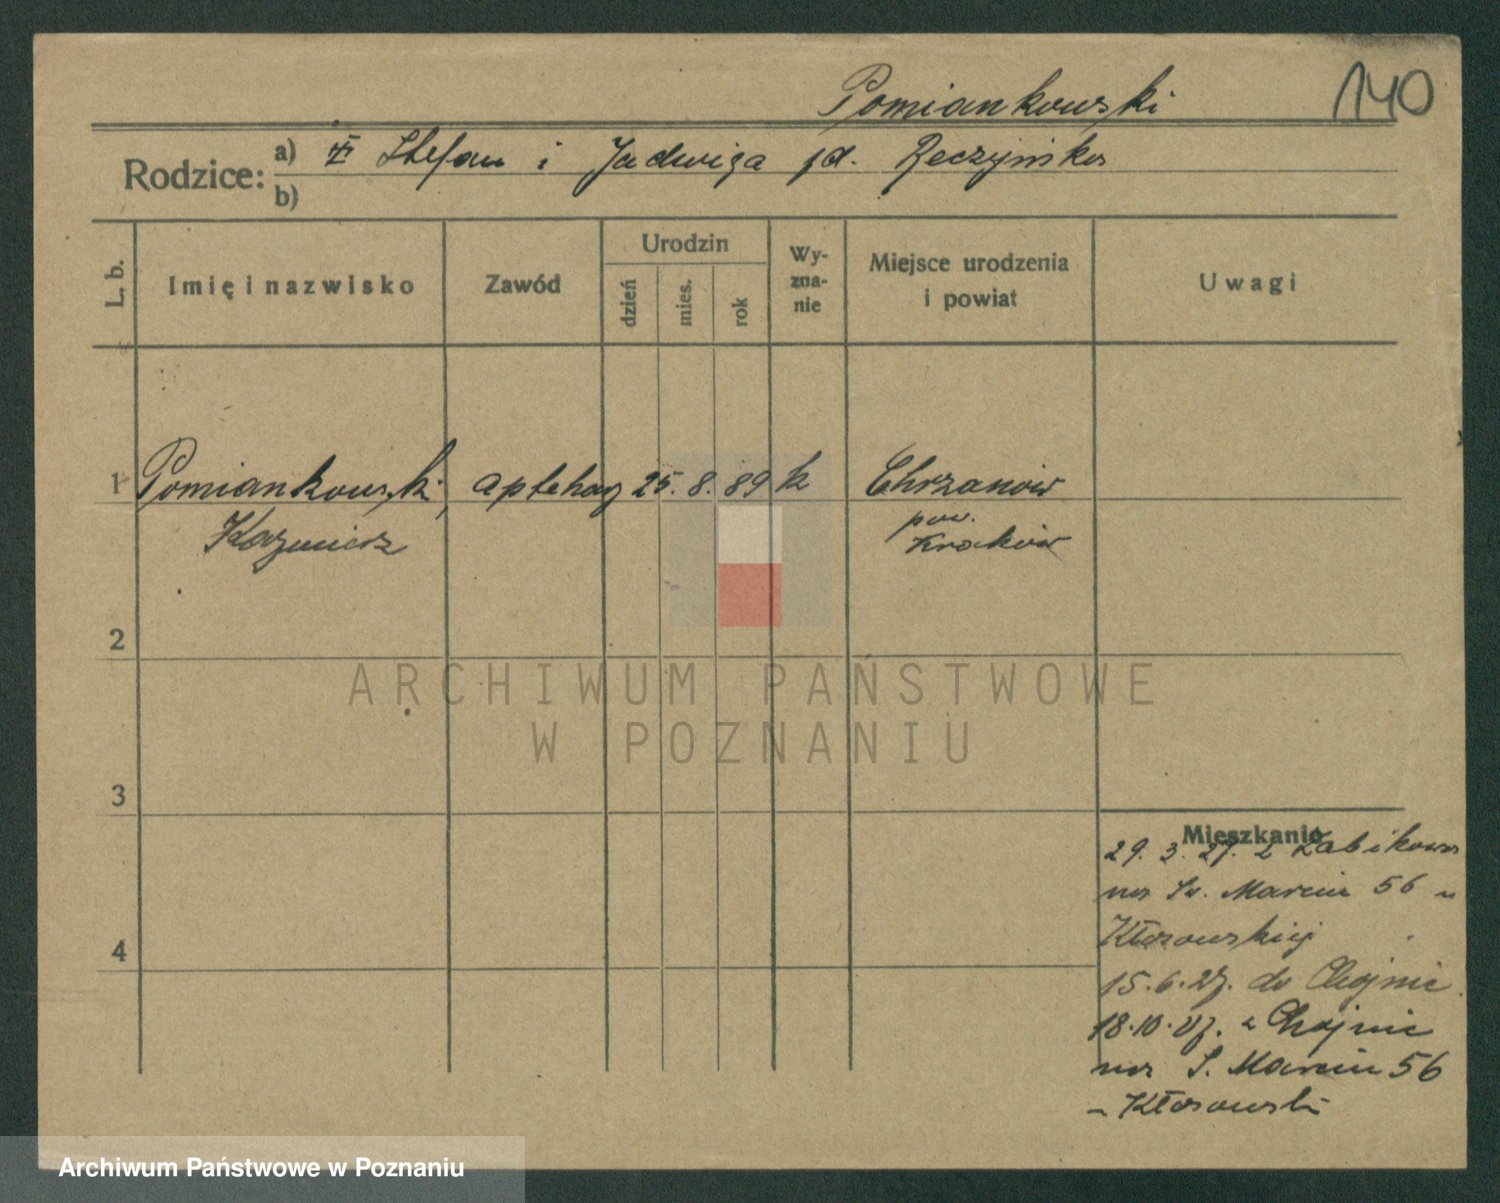 Pomiankowski 140
Rodzice: a) Stefan i Jadwiga
b)
L. b. Imię i nazwisko Zawód Urodzin dzień mies. rok Wy-zna-nie Miejsce urodzenia i powiat Uwagi
1 Pomiankowski, aptekarz 25. 8. 89 k Chrzanów
Kazimierz pow. Kraków
2
3
4
Mieszkanie
29. 3. 27. z Żabikowa
na Św. Marcin 56 u
Kłosowskiej
15.6.27. do Chojnic
18.10.27. z Chojnic
na Ś. Marcin 56
u Kłosowski
ARCHIWUM PAŃSTWOWE
W POZNANIU
Archiwum Państwowe w Poznaniu